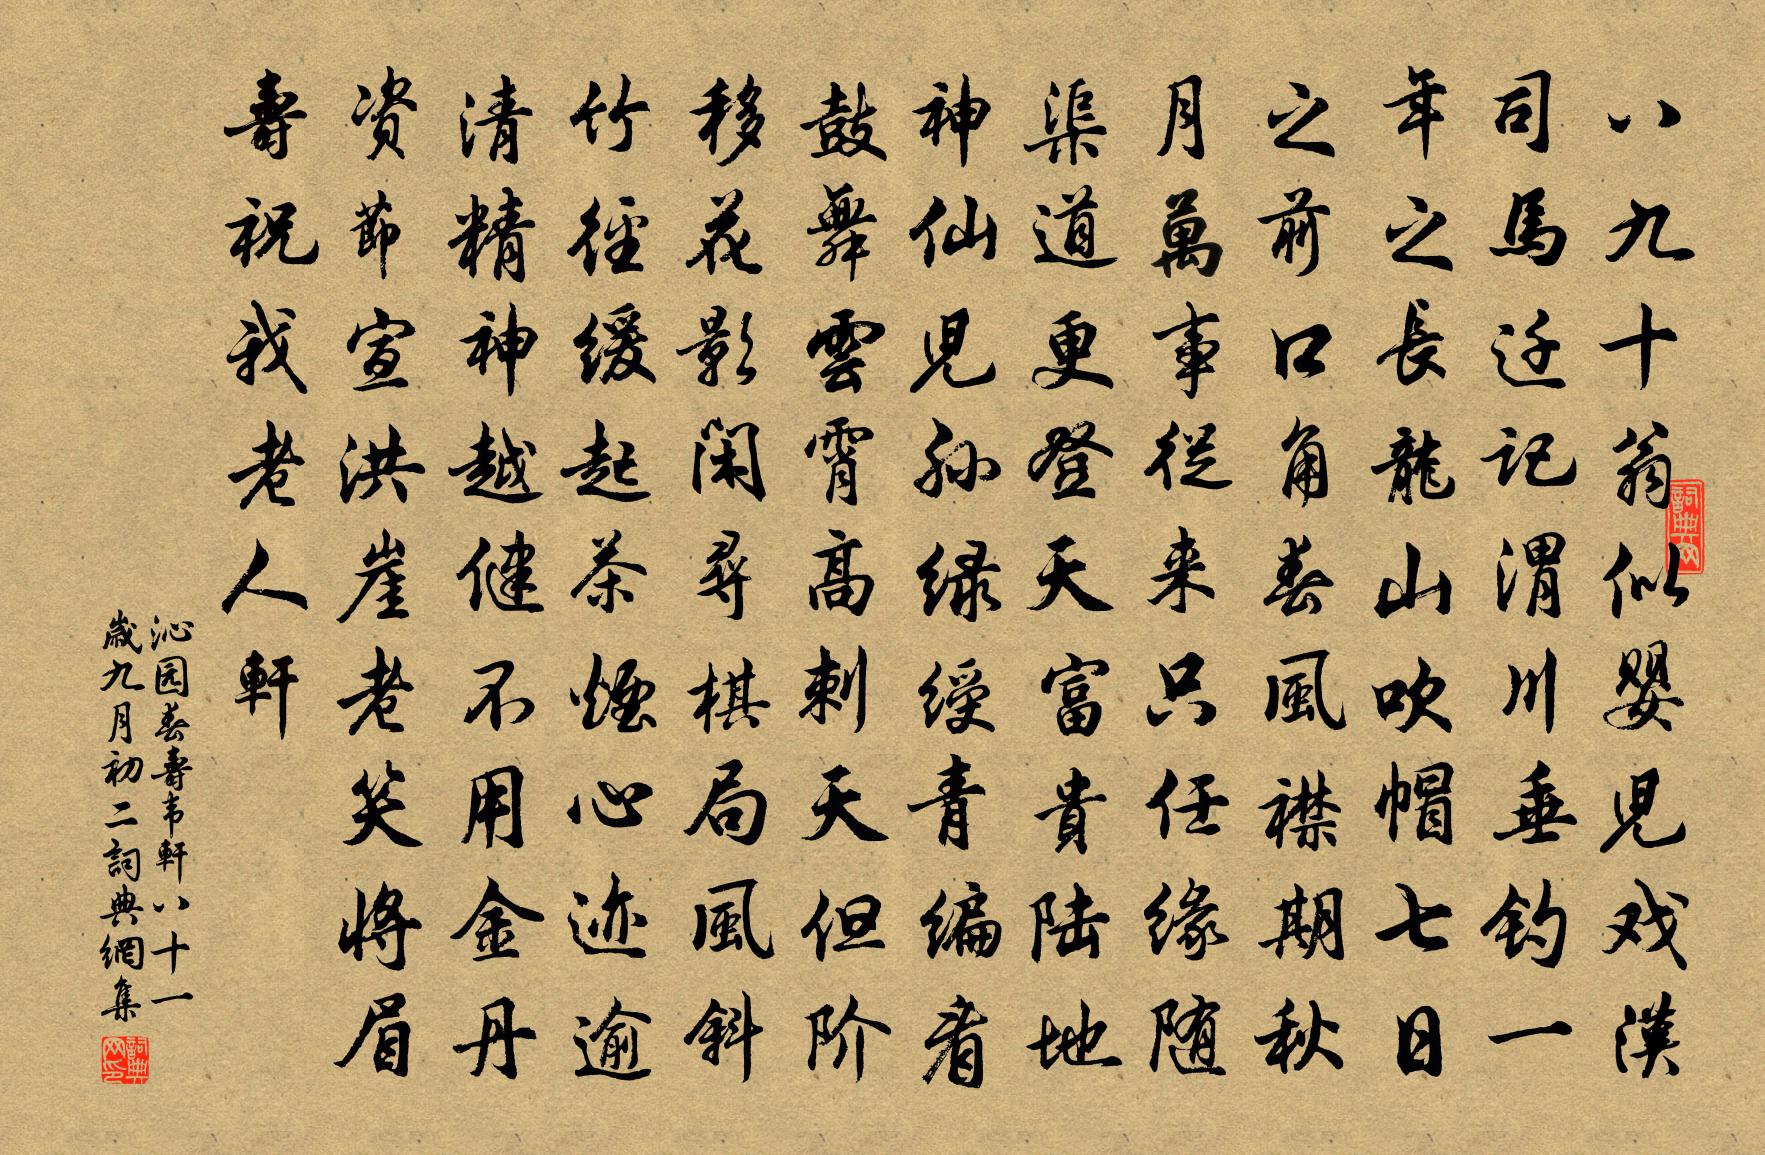 八九十翁似婴児戏漢
司馬迁记渭川垂钓一
年之長龍山吹帽七日
之前口角春風襟期秋
月萬事従来只任缘随
渠道更登天富貴陆地
神仙児孙绿绶青编看
鼓舞雲霄高刺天但阶
移花影闲尋棋局風斜
竹径缓起茶烟心迹逾
清精神越健不用金丹
资節宣洪崖老笑将眉
壽祝我老人軒
沁园春壽韦軒八十一
歳九月初二詞典網集
詞典网
詞典网印